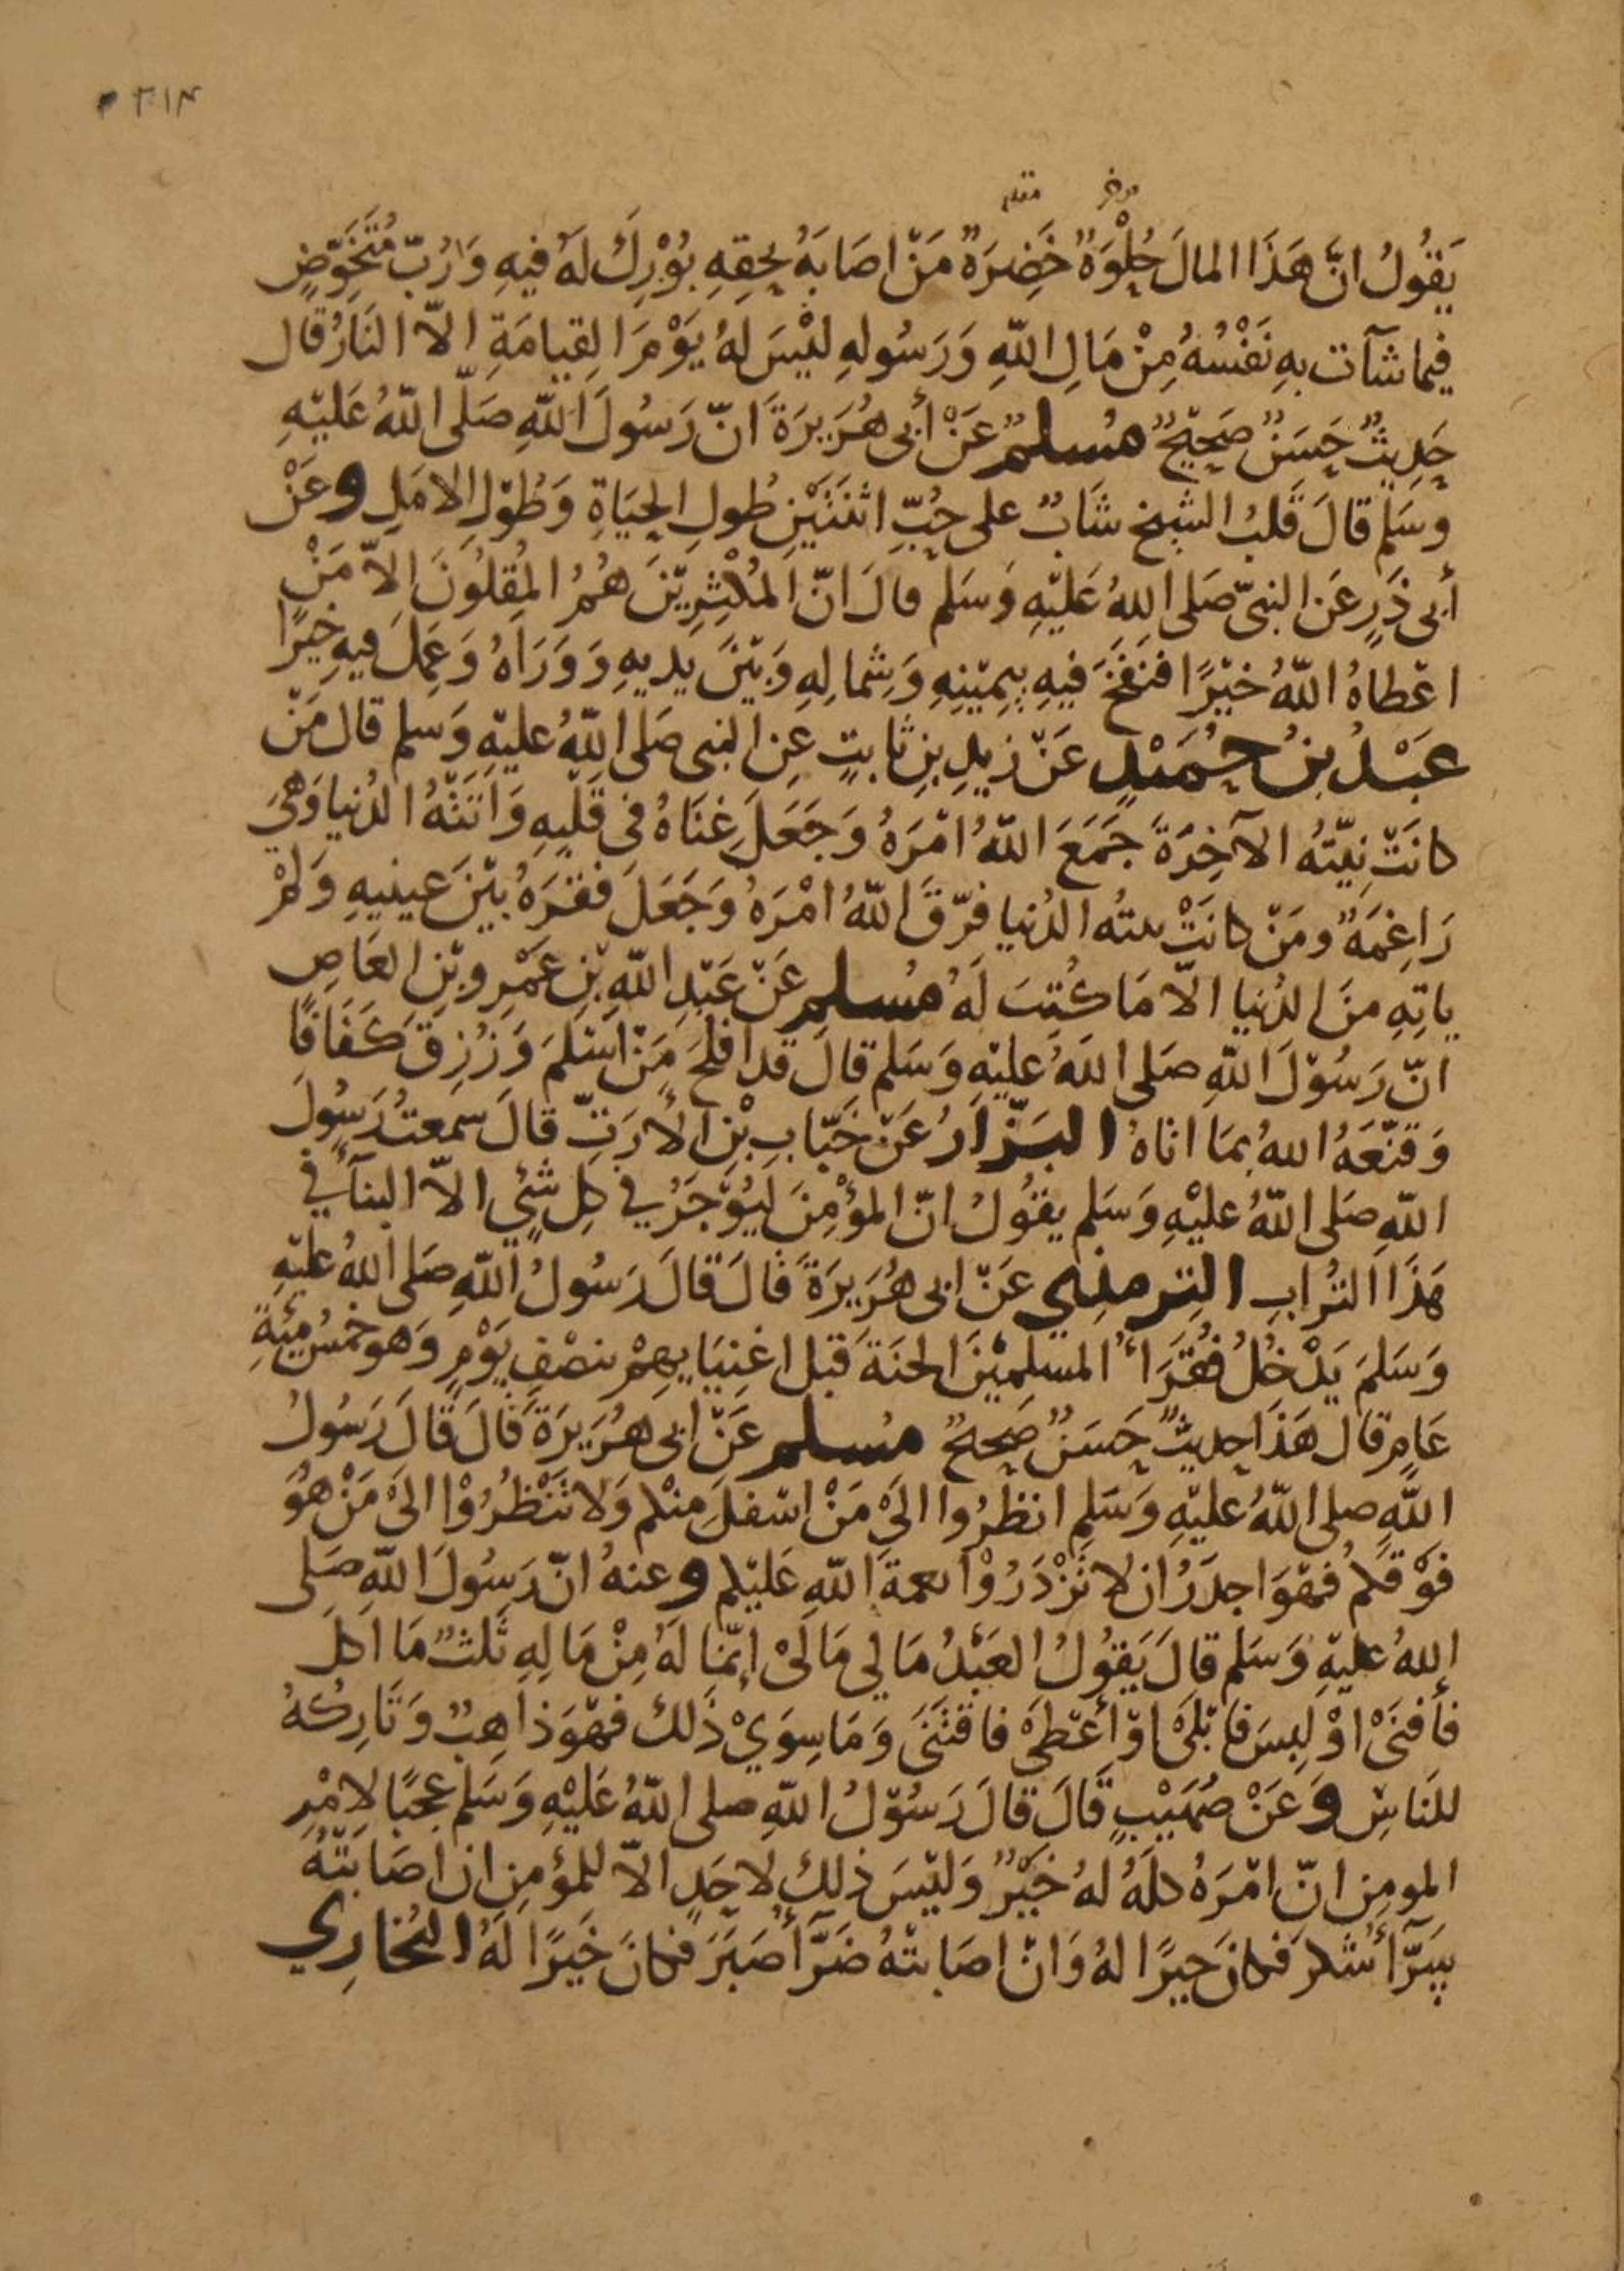 ٣١٤
موخر مقدم
يَقُولُ انَّ هَذَا المالَ حُلْوَةٌ خَضِرَةٌ مَنْ اصَابَهُ بِحقِهِ بُوْرِكَ لَهُ فيهِ وَرُبّ مُتَخَوِّضٍ
فيما شآت بهِ نَفْسُهُ مِنْ مَالِ اللّهِ وَرَسُولهِ ليْسَ لهُ يَوْمَ القِيامَةِ الاّ النَارُ قال
حَدِيثٌ حَسَنٌ صَحِيْحٌ مسلم عَنْ أبى هُرَيرَةَ انّ رَسُولَ اللّهِ صَلّى اللّهُ عَليْهِ
وسَلم قالَ قَلبُ الشيخ شَابٌ على حُبِّ اثنَتَيْنِ طُولِ الحيَاةِ وَطُوْلِ الامَلِ وعَنْ
أبى ذَرٍ عَن النبىّ صَلى اللهُ عَليْهِ وَسَلم قالَ انّ المُكْثِرِيْنَ هُمُ المُقِلُونَ الاّ مَنْ
اعْطاهُ اللّهُ خيْرًا فنَفَحَ فيهِ بِيمِيْنِهِ وَشِمالِهِ وَبَيْنَ يديهِ وَوَرَاهُ وَعَمِلَ فيهِ خيرًا
عَبْدُ بنُ حُمَيْدٍ عَنْ زيدِ بنِ ثابتٍ عنِ النبى صَلى اللّهُ عليْهِ وَسلم قال مَنْ
كانَتْ نِيّتُهُ الآخِرَةَ جَمَعَ اللّهُ امْرَهُ وَجَعَلَ غنَاهُ فى قلْبِهِ وَاتَتْهُ الدُنيا وَهيَ
رَاغِمَةٌ ومَنْ كانَتْ نيتُه الدُنيا فرّقَ اللّهُ امْرَهُ وَجَعَلَ فقرَهُ بيْنَ عينيهِ وَلمْ
ياتِهِ منَ الدُنيا الاّ مَا كُتِبَ لَهُ مُسلم عَنْ عَبْدِ اللّهِ بْنِ عَمْرِو بْنِ العَاصِ
انّ رَسُوْلَ اللّهِ صَلى اللّهُ عَليْهِ وَسَلم قالَ قد افلَحَ مَنْ اسْلمَ وَرُزِقَ كفَافًا
وَقنّعَهُ اللهُ بمَا اتاهُ البَزّارُ عَنْ خَبّابِ بْنِ الأرَتِّ قالَ سمعتُ رَسُولَ
اللّهِ صَلى اللّهُ عليْهِ وَسَلم يقُولُ انّ المؤْمِنَ ليُوْجَرُ في كلِ شَئٍ الاّ البنآَ في
هَذَا التُرابِ التِرمذِي عَنْ ابى هُرَيرَةَ قالَ قالَ رَسُولُ اللّهِ صَلى اللهُ عليْهِ
وَسَلمَ يَدْخُلُ فُقَرَآءُ المسلِمِيْنَ الجنَةَ قبْل اغنِيَايهِمْ بنصْفِ يَوْمٍ وَهو خمسُ مِئَةِ
عَامٍ قال هَذَا حديثٌ حَسَنٌ صَحيحٌ مسلم عَنْ ابى هُرَيرَةَ قالَ قالَ رَسُولُ
اللّهِ صلى اللّهُ عليْهِ وَسَلم انظُرُوا الىَ مَنْ اسْفلَ منْكم وَلا تنْظُرُوْا الىَ مَنْ هُوَ
فوْقكمْ فهْوَ اجدَرُ ان لا تَزْدَرُوْا نعمةَ اللّهِ عَليْكم وعنهُ انّ رَسُولَ اللّهِ صَلى
اللهُ عليْهِ وَسَلم قالَ يَقُولُ العَبْدُ مَالي مَالىْ إنّمَا لَهُ مِنْ مَالِهِ ثَلثٌ مَا اكلَ
فأفنَىْ اوْ لبِسَ فابْلىَ اوْ أعْطىَ فاقتَنَىَ وَمَا سِوَيْ ذَلك فهْوَ ذاهِبٌ وَتَارِكهُ
للنَاسِ وَعَنْ صُهَيْبٍ قَالَ قالَ رَسُوْلُ اللّهِ صلى اللّهُ عَليْهِ وَسَلم عجَبًا لامْرِ
المومِنِ انّ امْرَهُ كلَهُ لهُ خيْرٌ وَليْسَ ذلك لاحَدٍ الاّ للمؤمِنِ ان اصَابَتْهُ
سَرّآءُ شكرَ فكانَ خيرًا لهُ وَانْ اصَابتهُ ضَرّآءُ صَبَرَ فكانَ خَيرًا لَهُ البُخارِي